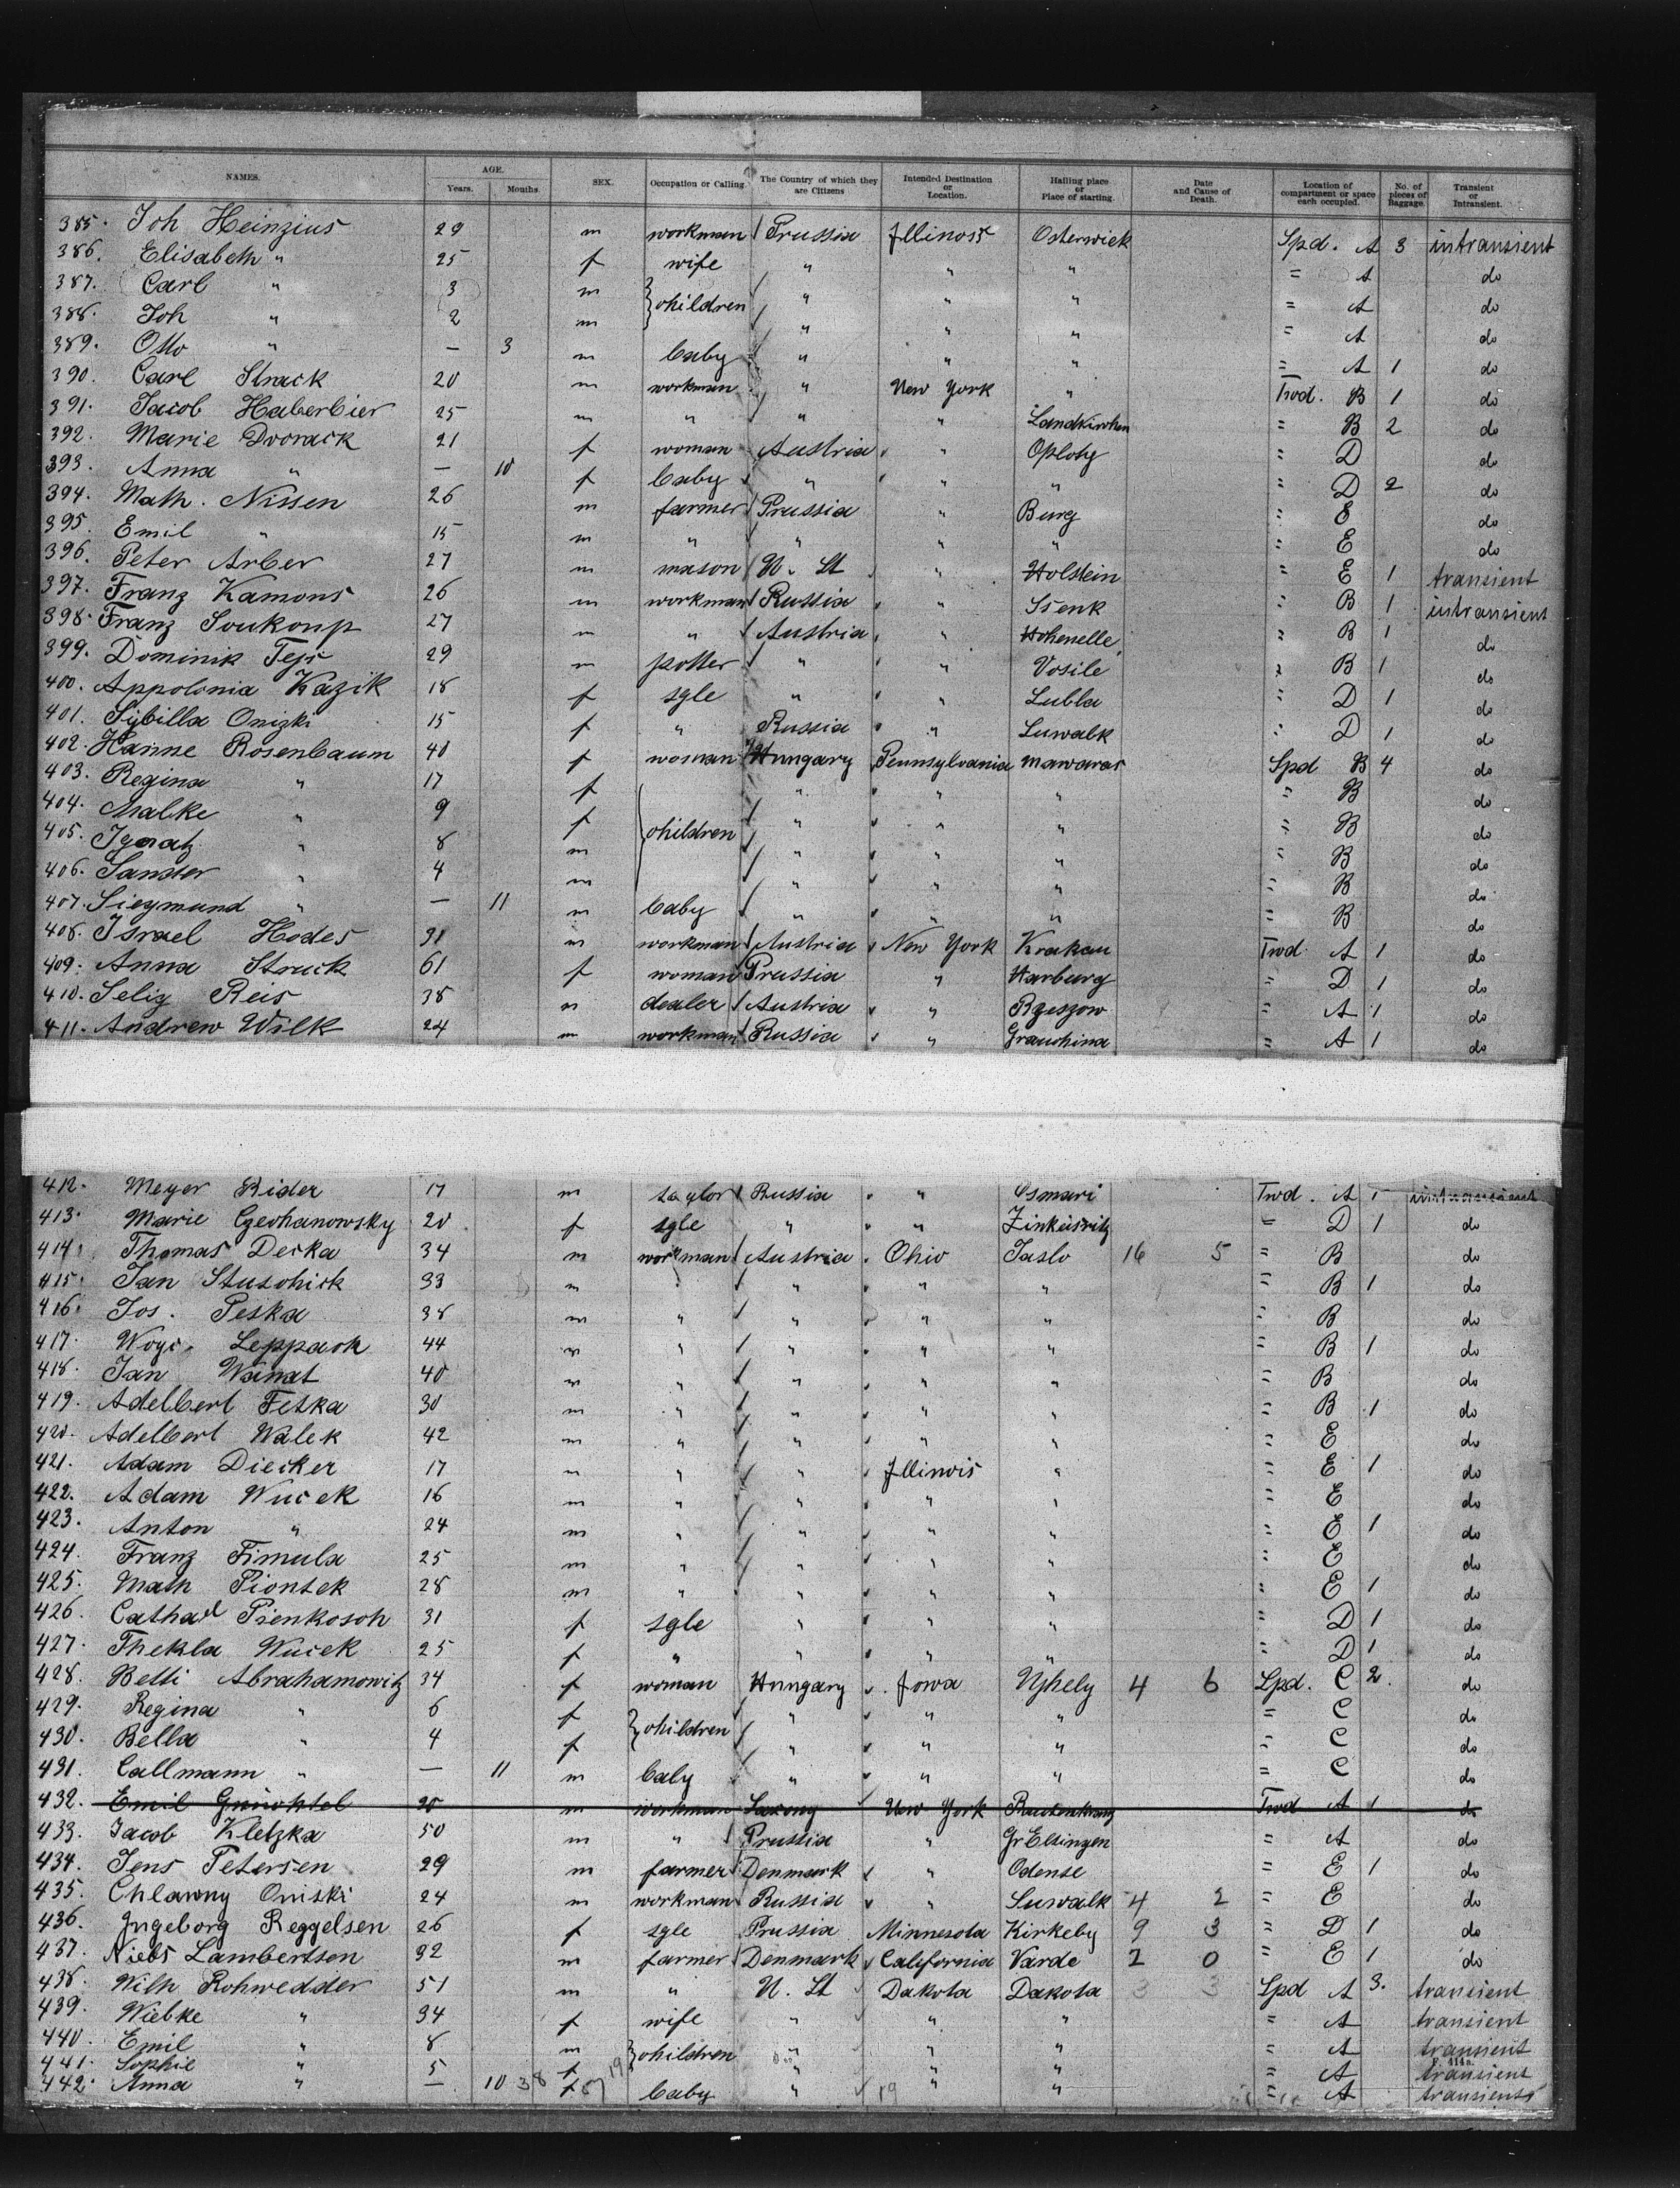 NAMES. AGE. Years. Months. SEX. Occupation or Calling. The Country of which they are Citizens Intended Destination or Location. Hailing place or Place of starting. Date and Cause of Death. Location of compartment or space each occupied. No. of pieces of Baggage. Transient or Intransient.
385. Joh Heinzius 29 m workman Prussia Illinois Osterwick Spd. A 3 intransient
386. Elisabeth " 25 f wife " " " = A do
387. Carl " 3 m children " " " = A do
388. Joh " 2 m " " " = A do
389. Otto " — 3 m baby " " " = A 1 do
390. Carl Strack 20 m workman " New York " Twd. B 1 do
391. Jacob Haberbier 25 m " " " Landkirchen = B 2 do
392. Marie Dvorack 21 f woman Austria " Oploty = D do
393. Anna " — 10 f baby " " " = D 2 do
394. Math. Nissen 26 m farmer Prussia " Burg = E do
395. Emil " 15 m " " " " = E do
396. Peter Arber 27 m mason U. St " Holstein = E 1 transient
397. Franz Kamons 26 m workman Russia " Ssenk = B 1 intransient
398. Franz Soukoup 27 m " Austria " Hohenelle = B 1 do
399. Dominik Tejs 29 m potter " " Vosile = B 1 do
400. Appolonia Kazik 18 f sgle " " Lubla = D 1 do
401. Sybilla Onizki 15 f " Russia " Suwalk = D 1 do
402. Hanne Rosenbaum 40 f woman Hungary Pennsylvania mawaras Spd B 4 do
403. Regina " 17 f " " " = B do
404. Malke " 9 f children " " " = B do
405. Ignatz " 8 m " " " = B do
406. Sander " 4 m " " " = B do
407. Siegmund " — 11 m baby " " " = B do
408. Israel Hodes 31 m workman Austria New York Krakau Twd A 1 do
409. Anna Struck 61 f woman Prussia " Harburg = D 1 do
410. Selig Reis 38 m dealer Austria " Rzeszow = A 1 do
411. Andrew Wilk 24 m workman Russia " Grauchina = A 1 do
412. Meyer Rider 17 m taylor Russia " Osmari Twd. A 1 intransient
413. Marie Czechanowsky 20 f sgle " " = D 1 do
414. Thomas Decka 34 m workman Austria Ohio Jaslo 16 5 = B do
415. Jan Stuschick 33 m " " " " = B 1 do
416. Jos. Peska 38 m " " " " = B do
417. Woyc. Leppach 44 m " " " " = B 1 do
418. Jan Wanat 40 m " " " " = B do
419. Adelbert Feska 30 m " " " " = B 1 do
420. Adelbert Walek 42 m " " " " = E do
421. Adam Diecker 17 m " " Illinois " = E 1 do
422. Adam Wucek 16 m " " " " = E do
423. Anton " 24 m " " " " = E 1 do
424. Franz Fimula 25 m " " " " = E do
425. Math Piontek 28 m " " " " = E 1 do
426. Cathar Pienkosch 31 f sgle " " " = D 1 do
427. Thekla Wucek 25 f " " " " = D 1 do
428. Betti Abrahamowitz 34 f woman Hungary Iowa Ujhely 4 6 Spd. C 2. do
429. Regina " 6 f children " " " = C do
430. Bella " 4 f " " " = C do
431. Callmann " — 11 m baby " " " = C do
432. Emil 20 m workman Saxony New York Rautenkranz Twd A 1 do
433. Jacob Kletzka 50 m " Prussia " Gr Elsingen = A do
434. Jens Petersen 29 m farmer Denmark " Odense = E 1 do
435. Chlawny Oniski 24 m workman Russia " Suwalk 4 2 = E do
436. Ingeborg Reggelsen 26 f sgle Prussia Minnesota Kirkeby 9 3 = D 1 do
437. Niels Lambertsen 32 m farmer Denmark California Varde 2 0 = E 1 do
438. Wilh Rohwedder 51 m " U. St Dakota Dakota 3 3 Spd A 3. transient
439. Wiebke " 34 f wife " " " = A transient
440. Emil " 8 m children " " " = A transient
P. 414a.
441. Sophie " 5 f " " " = A transient
442. Anna " — 10 38 f 57 19 baby " 19 " " = A transient